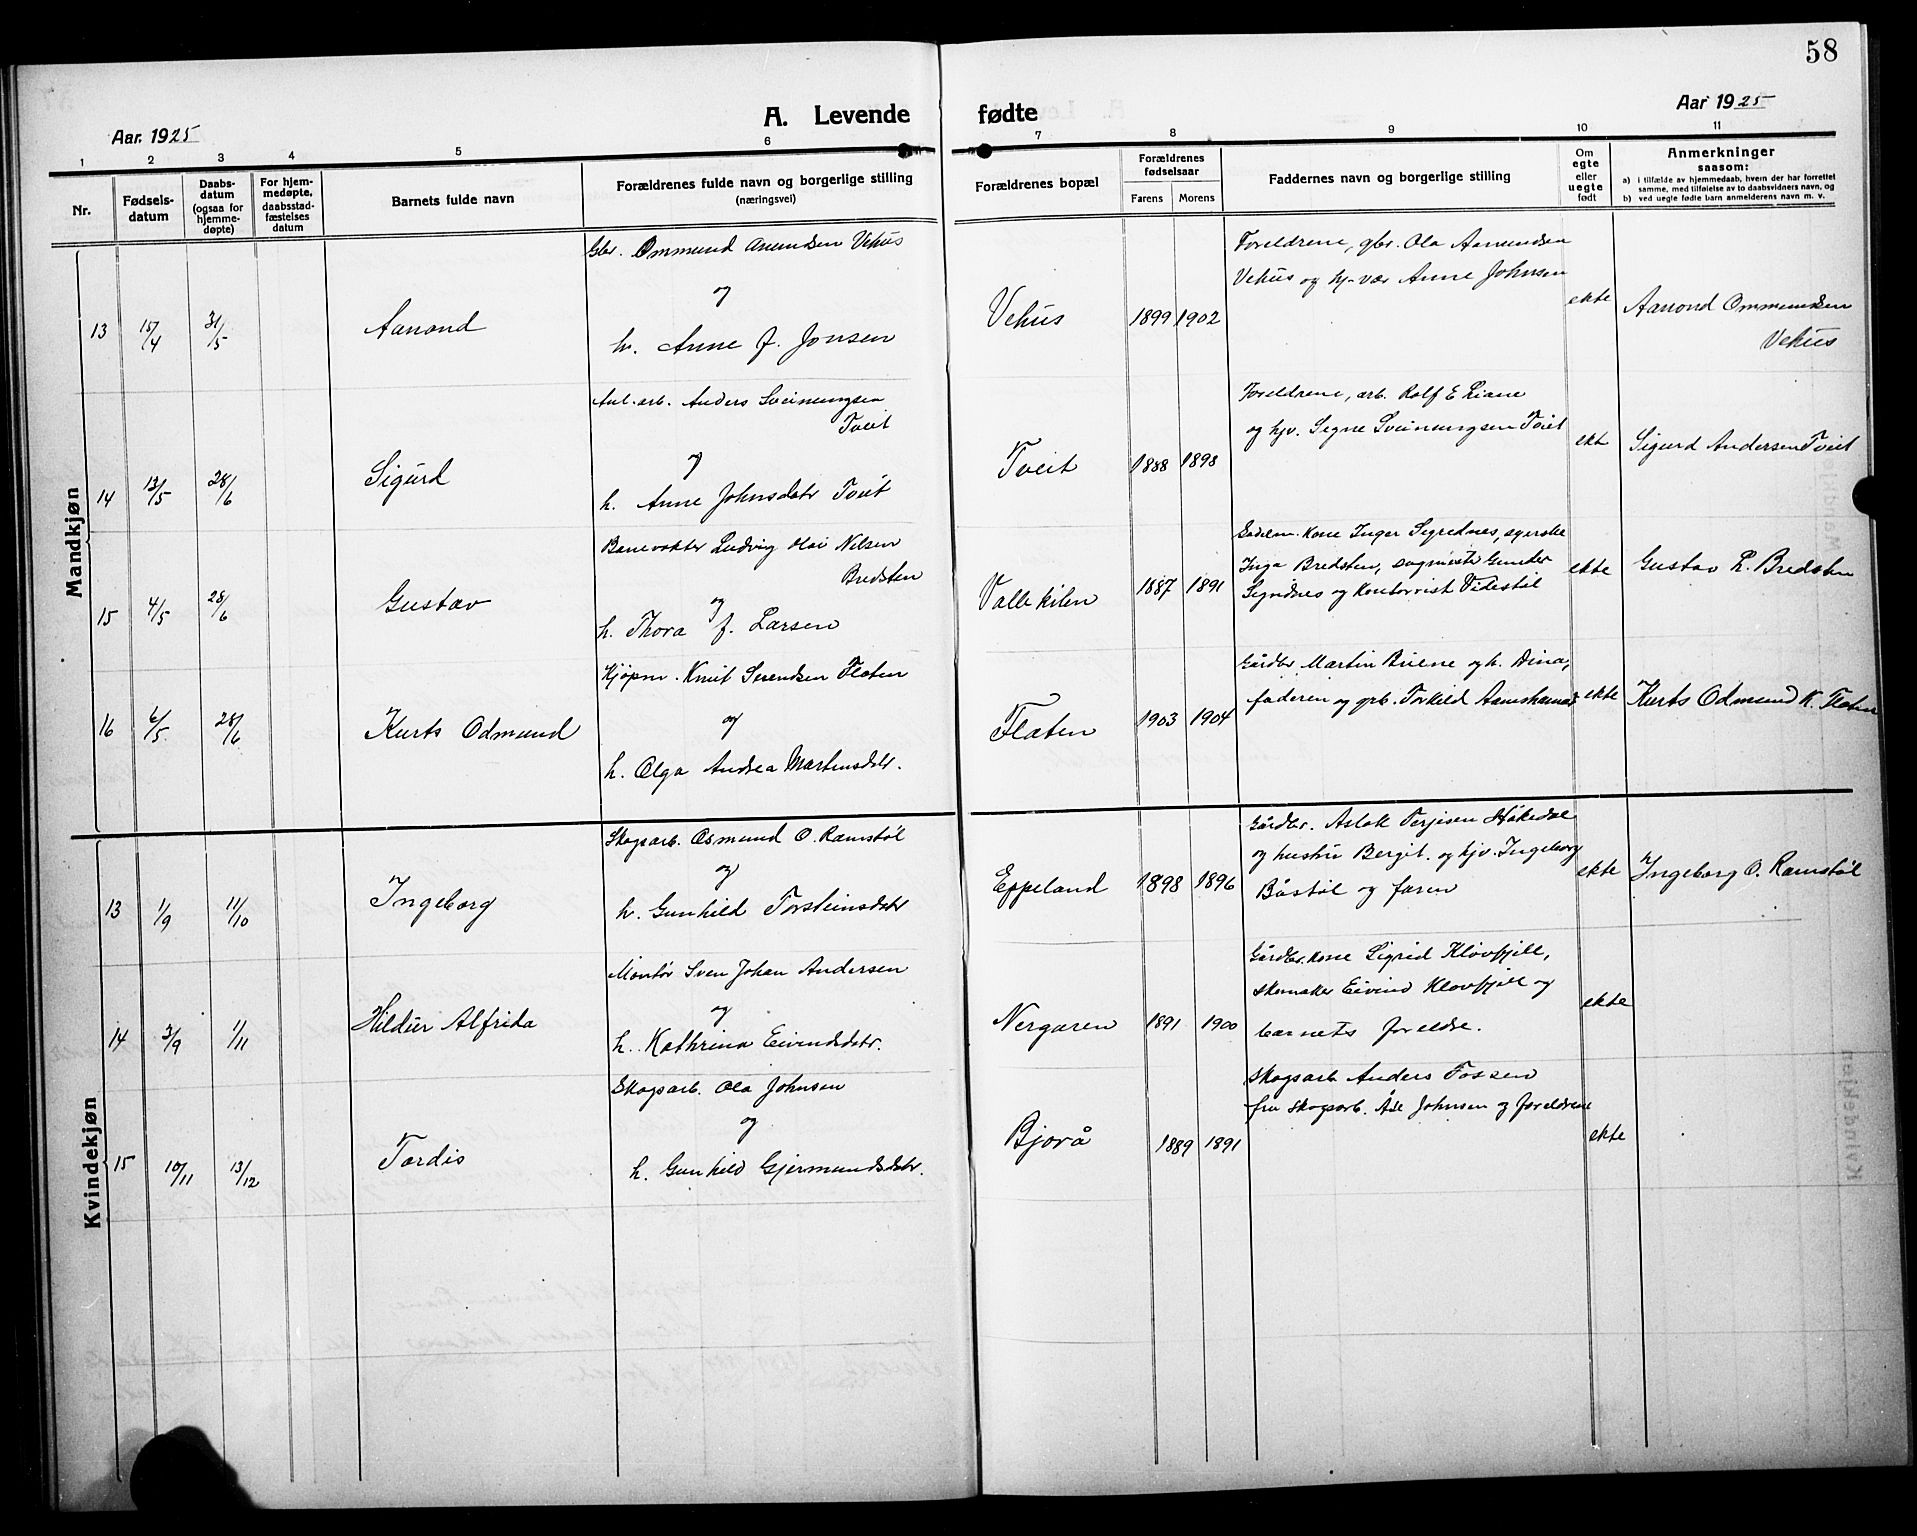 58
A. Levende fødte
Aar. 1925
Aar 1925
1 2 3 4 5 6 7 8 9 10 11
Nr.
Fødsels-
datum
Daabs-
datum
(ogsaa for
hjemme-
døpte)
For hjem-
medøpte,
daabsstad-
fæstelses
datum
Barnets fulde navn
Forældrenes fulde navn og borgerlige stilling
(næringsvei)
Forældrenes bopæl
Forældrenes
fødselsaar
Farens Morens
Faddernes navn og borgerlige stilling
Om
egte
eller
uegte
født
Anmerkninger
saasom:
a) i tilfælde av hjemmedaab, hvem der har forrettet
samme, med tilføielse av to daabsvidners navn, og
b) ved uegte fødte barn anmelderens navn m. v.
Mandkjøn
13 15/4 31/5 Aanond
Gbr. Ommund Anundsen Vehus
og
h. Anne J. Jonsen
Vehus 1899 1902
Foreldrene, gbr. Ola Aanundsen
Vehus og hj-vær Anne Johnsen
ekte
Aanond Ommundsen
Vehus
14 13/5 28/6 Sigurd
Anl. arb. Anders Sveinungsen
Tveit
og
h. Anne Johnsdatr Tveit
Tveit 1888 1898
Foreldrene, arb. Rolf E Liane
og hjv. Segne Sveinungsen Tveit
ekt
Sigurd Andersen Tveit
15 4/5 28/6 Gustav
Banevokter Ludvig Olai Nilsen
Bredsten
og
h. Thora f. Larsen
Vallekilen 1887 1891
Kone Inger Sigridnes, syerske
Inga Bredsten, Gunder
Sigridnes og Kontorist Videstøl
ekte
Gustav L. Bredsten
16 6/5 28/6 Kurts Odmund
Kjøpm. Knut Serendsen Flaten
og
h. Olga Andrea Martinsdatr.
Flaten 1903 1904
Gårdbr Martin Buene og h. Dina,
faderen og grb. Torkild Aamshamar
ekte
Kurts Odmund K. Flaten
Kvindekjøn
13 1/9 11/10 Ingeborg
Skogsarb. Osmund O. Ramstøl
og
h. Gunhild Torsteinsdatr
Eppeland 1898 1896
Gårdbr. Aslak Terjesen Håkedal
og hustru Bergit. og hjv. Ingeborg
Båstøl og faren
ekte
Ingeborg O. Ramstøl
14 3/9 1/11 Hildur Alfrida
Montør Sven Johan Andersen
og
h. Kathrina Eivindsdatr.
Nergaren 1891 1900
Gårdbr. kone Sigrid Klovfjell,
skomaker Eivind Klovfjell og
barnets foreldre.
ekte
15 10/11 13/12 Tordis
Skogsarb. Ola Johnsen
og
h. Gunhild Gjermundsdatr.
Bjorå 1889 1891
Skogsarb Anders Fossen
fru skogsarb. Åse Johnsen og foreldrene
ekte